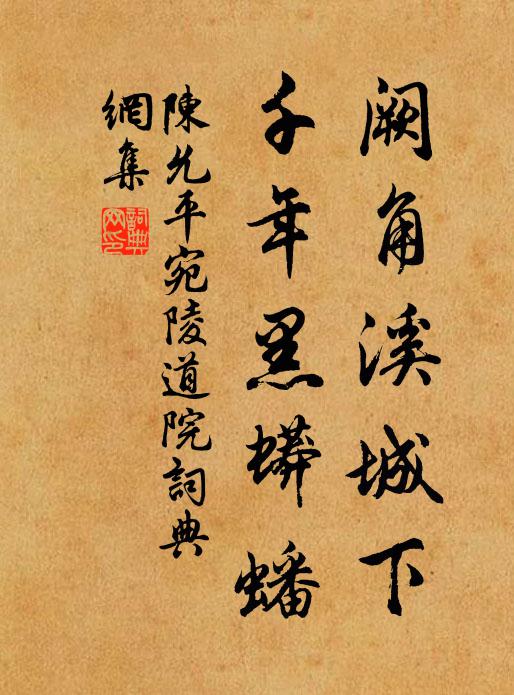 闕角溪城下
千年黑蟒蟠
陳允平宛陵道院詞典
網集
詞典網印